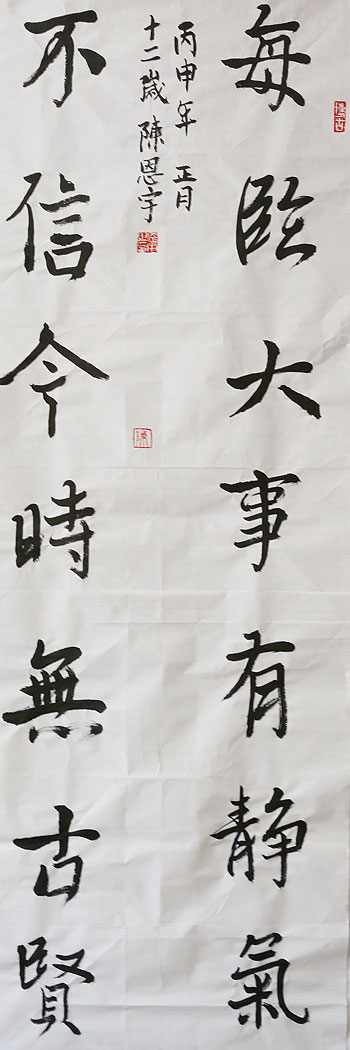 每臨大事有静氣
不信今時無古賢
丙申年 正月
十二歲 陳恩宇